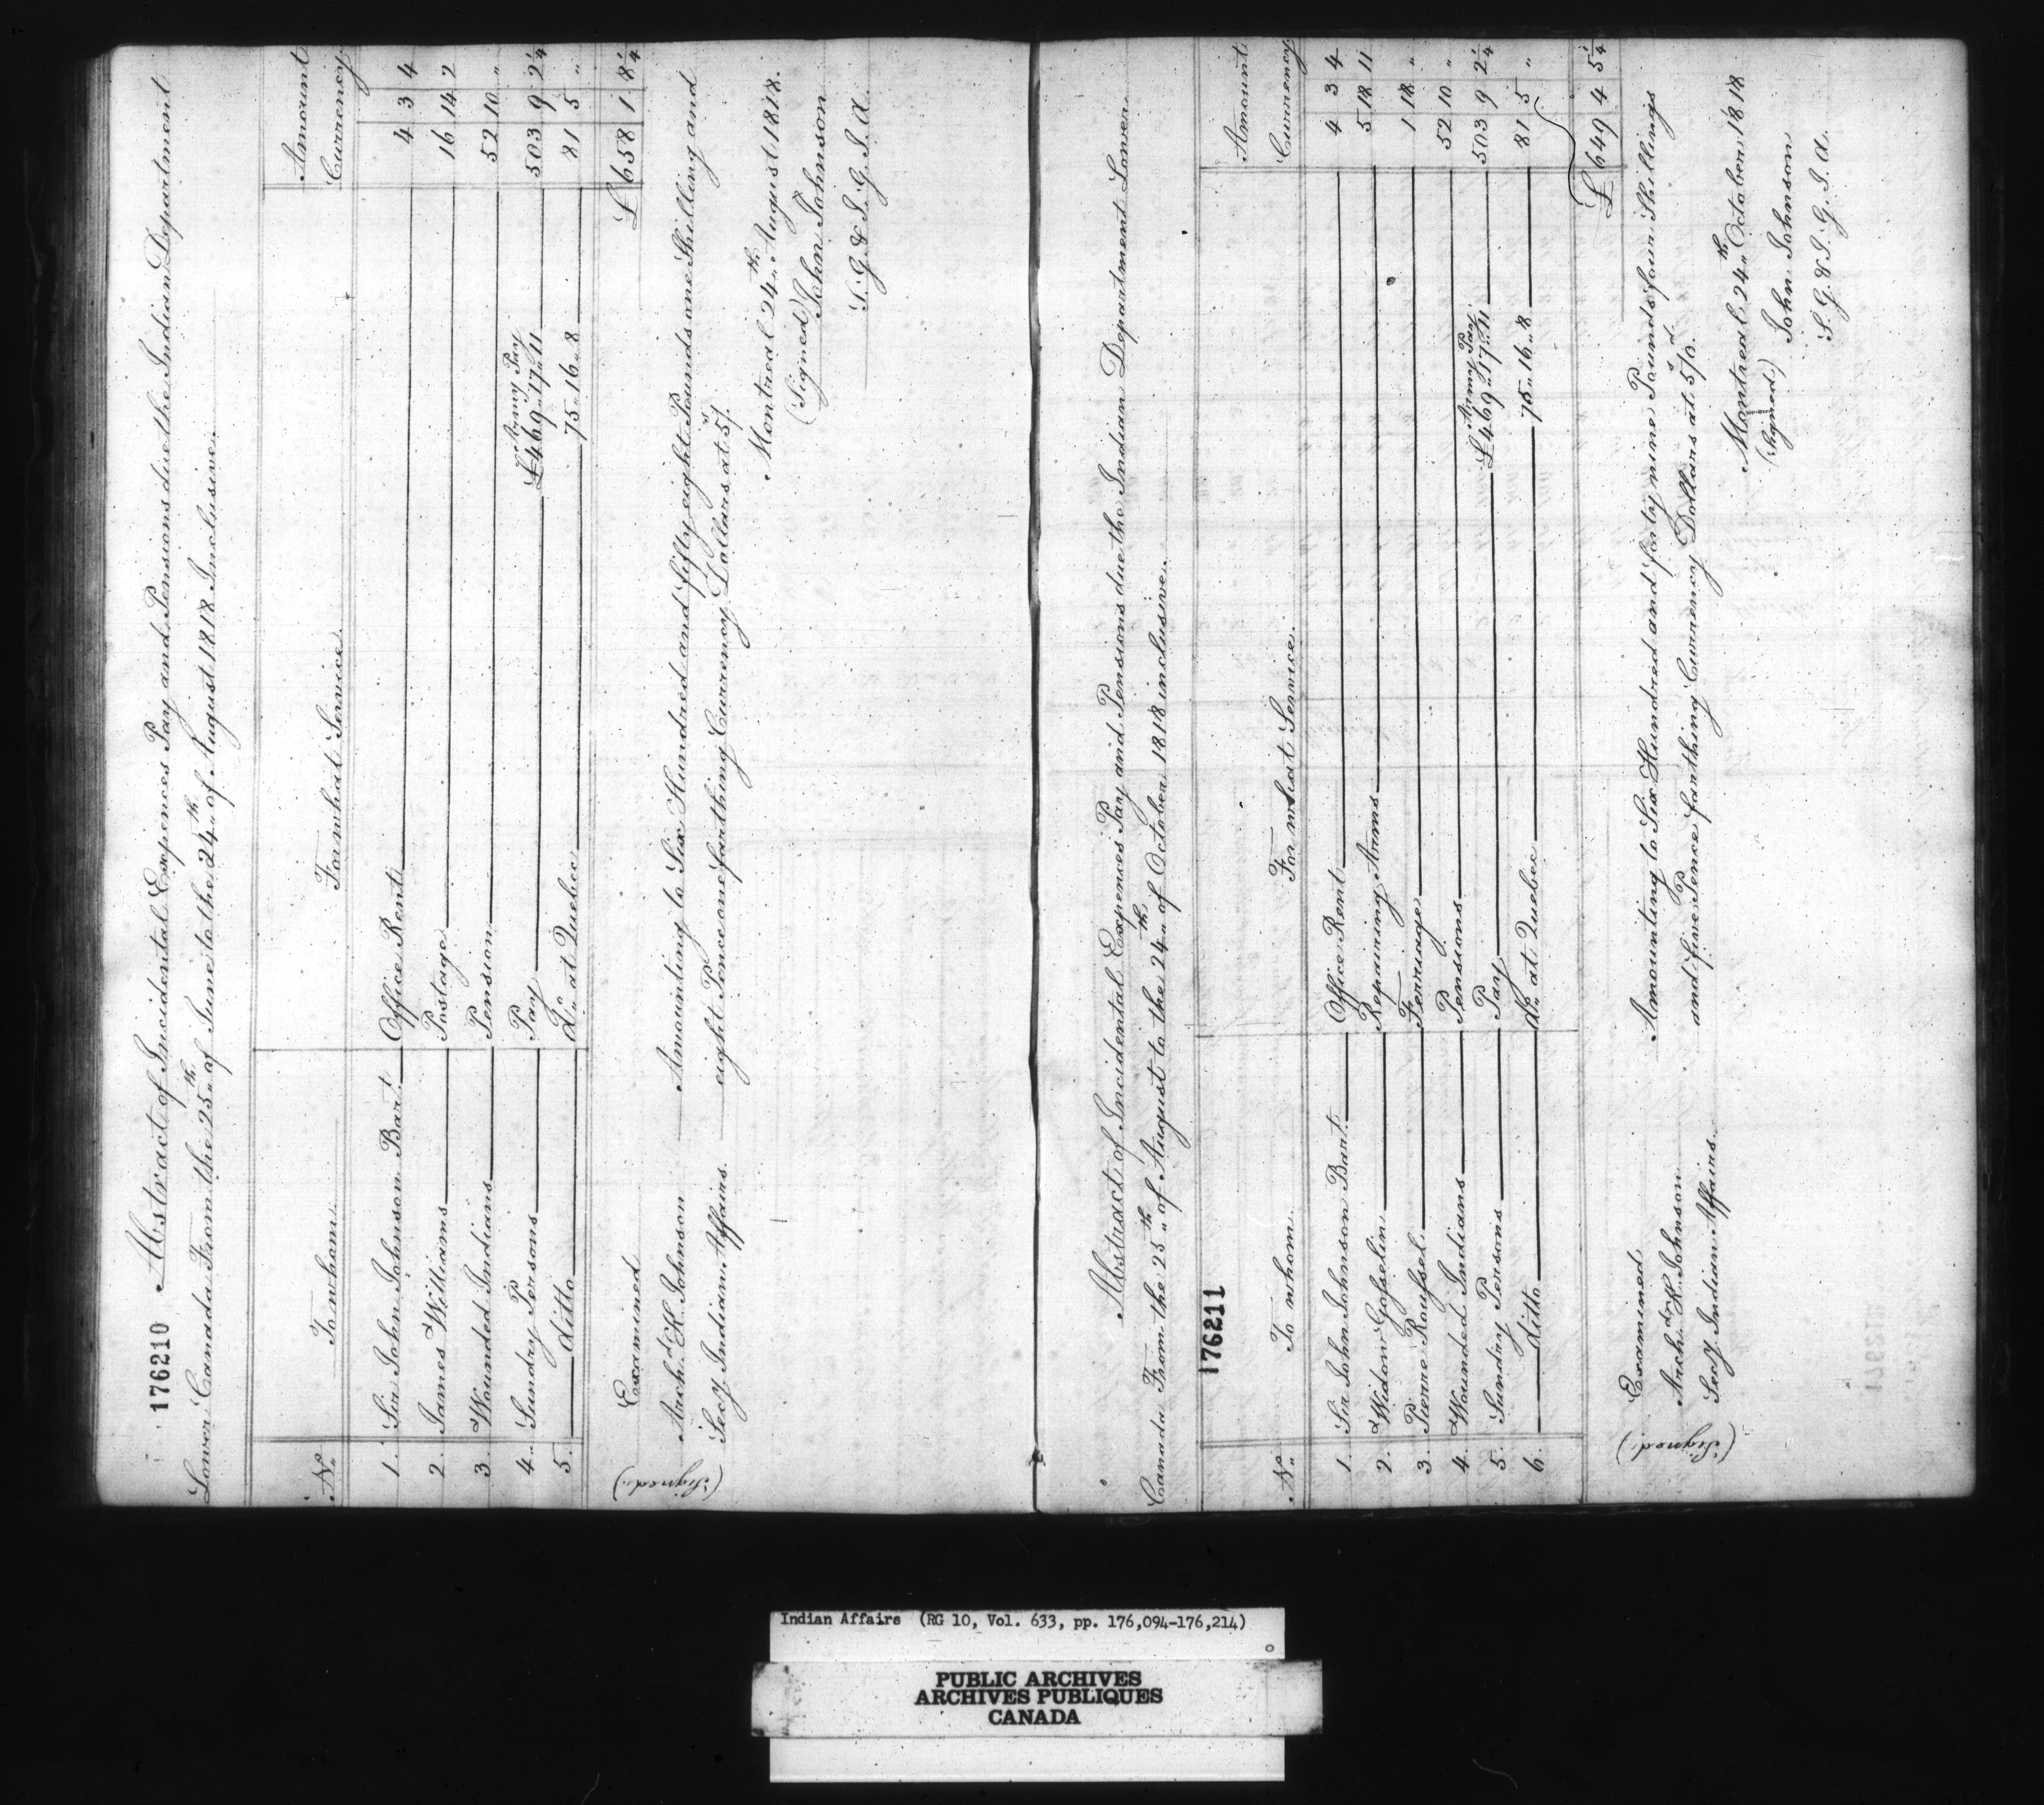 176210 Abstract of Incidental Expences Pay and Pensions due the Indian Department
Lower Canada From the 25th of June to the 24th of August 1818 Inclusive.
No. To whom For what Service Amount Currency
1. Sir John Johnson Bart. Office Rent 4 3 4
2. James Williams Postage 16 14 2
3. Wounded Indians Pension 52 10 "
4. Sundry Persons Pay Army Pay £469..17..11 503 9 2 1/4
5. ditto Do. at Quebec 75..16..8 81 5 "
£ 658 1 8 1/4
Examined
(Signed.) Archd. K. Johnson
Secy. Indian Affairs
Amounting to Six Hundred and fifty eight Pounds one Shilling and
eight Pence one farthing Currency Dollars at 5s/.
Montreal 24th August 1818.
(Signed) John Johnson
S. G. & I. G. I. A.
Abstract of Incidental Expences Pay and Pensions due the Indian Department Lower
Canada From the 25th of August to the 24th of October 1818 inclusive.
176211
No. To whom For what Service Amount Currency
1. Sir John Johnson Bart. Office Rent 4 3 4
2. Widow Gosselin Repairing Arms 5 18 11
3. Pierre Roussel Ferriage 1 18 "
4. Wounded Indians Pensions 52 10 "
5. Sundry Persons Pay Army Pay £469..17..11 503 9 2 1/4
6. ditto do. at Quebec 75..16..8 81 5 "
£ 649 4 5 1/4
Examined
(Signed.) Archd. K. Johnson
Secy Indian Affairs
Amounting to Six Hundred and forty nine Pounds four Shillings
and five Pence farthing Currency Dollars at 5s/0d.
Montreal 24th October 1818
(Signed.) John Johnson
S. G. & I. G. I. A.
Indian Affairs (RG 10, Vol. 633, pp. 176,094-176,214)
PUBLIC ARCHIVES
ARCHIVES PUBLIQUES
CANADA